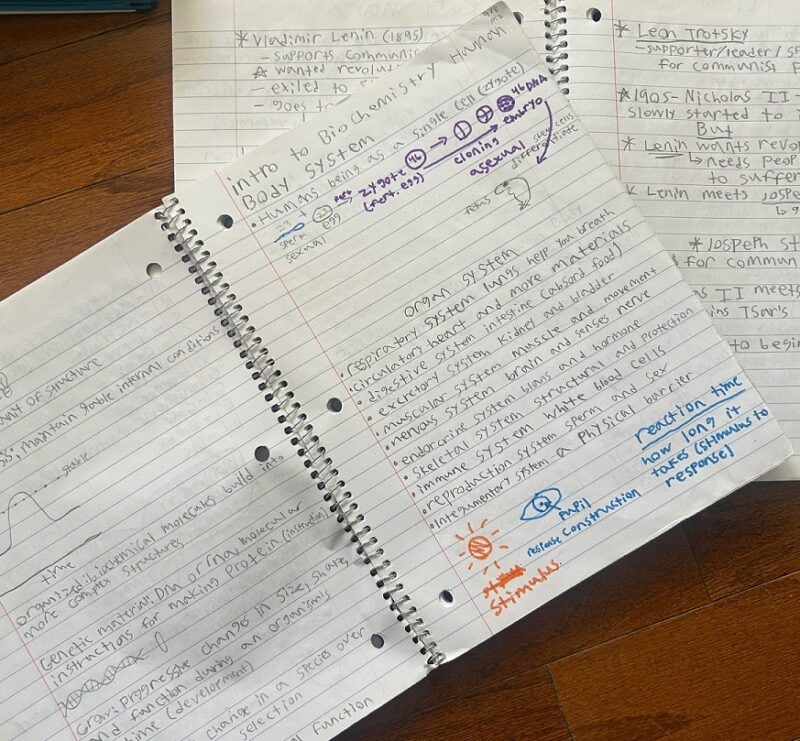 * Vladimir Lenin (1895)
- supports communi
☆ wanted revolu
- exiled to
- goes to
* Leon Trotsky
- supporter/leader/
for communist p
*1905- Nicholas II -
slowly started to
But
* Lenin wants revol
↳ needs peop
to suffer
* Lenin meets Josep
* Jospeph St
for commun
II meets
ins Tsar's
to begin
intro to Biochemistry Human
Body system
• Humans being as a single cell (zygote)
23 + 23 → zygote 46 → 46 DNA
sperm egg (fert. egg) cloning embryo
sexual asexual stem cells
differentiate
fetus
organ system
• respiratory system lungs help you breath
• circulatory heart and more materials
• digestive system intestine (absord food)
• excretory system kidney and bladder
• muscular system muscle and movement
• nervous system brain and senses nerve
• endorcrine system blans and hormone
• skeletal system structural and protection
• immune system white blood cells
• reproduction system sperm and sex
• Integumentary system a Physical barrier
reaction time
how long it
takes (stimulus to
response)
pupil
response construction
stimulus.
unit of structure
maintain stable internal conditions
stable
time
organized: biochemical molecules build into
more complex structures
Genetic material: DNA or RNA molecular
instructions for making protein (instruction)
Grow: progressive changes in size, share,
and function during an organisms
time (development)
change in a species over
selection
function